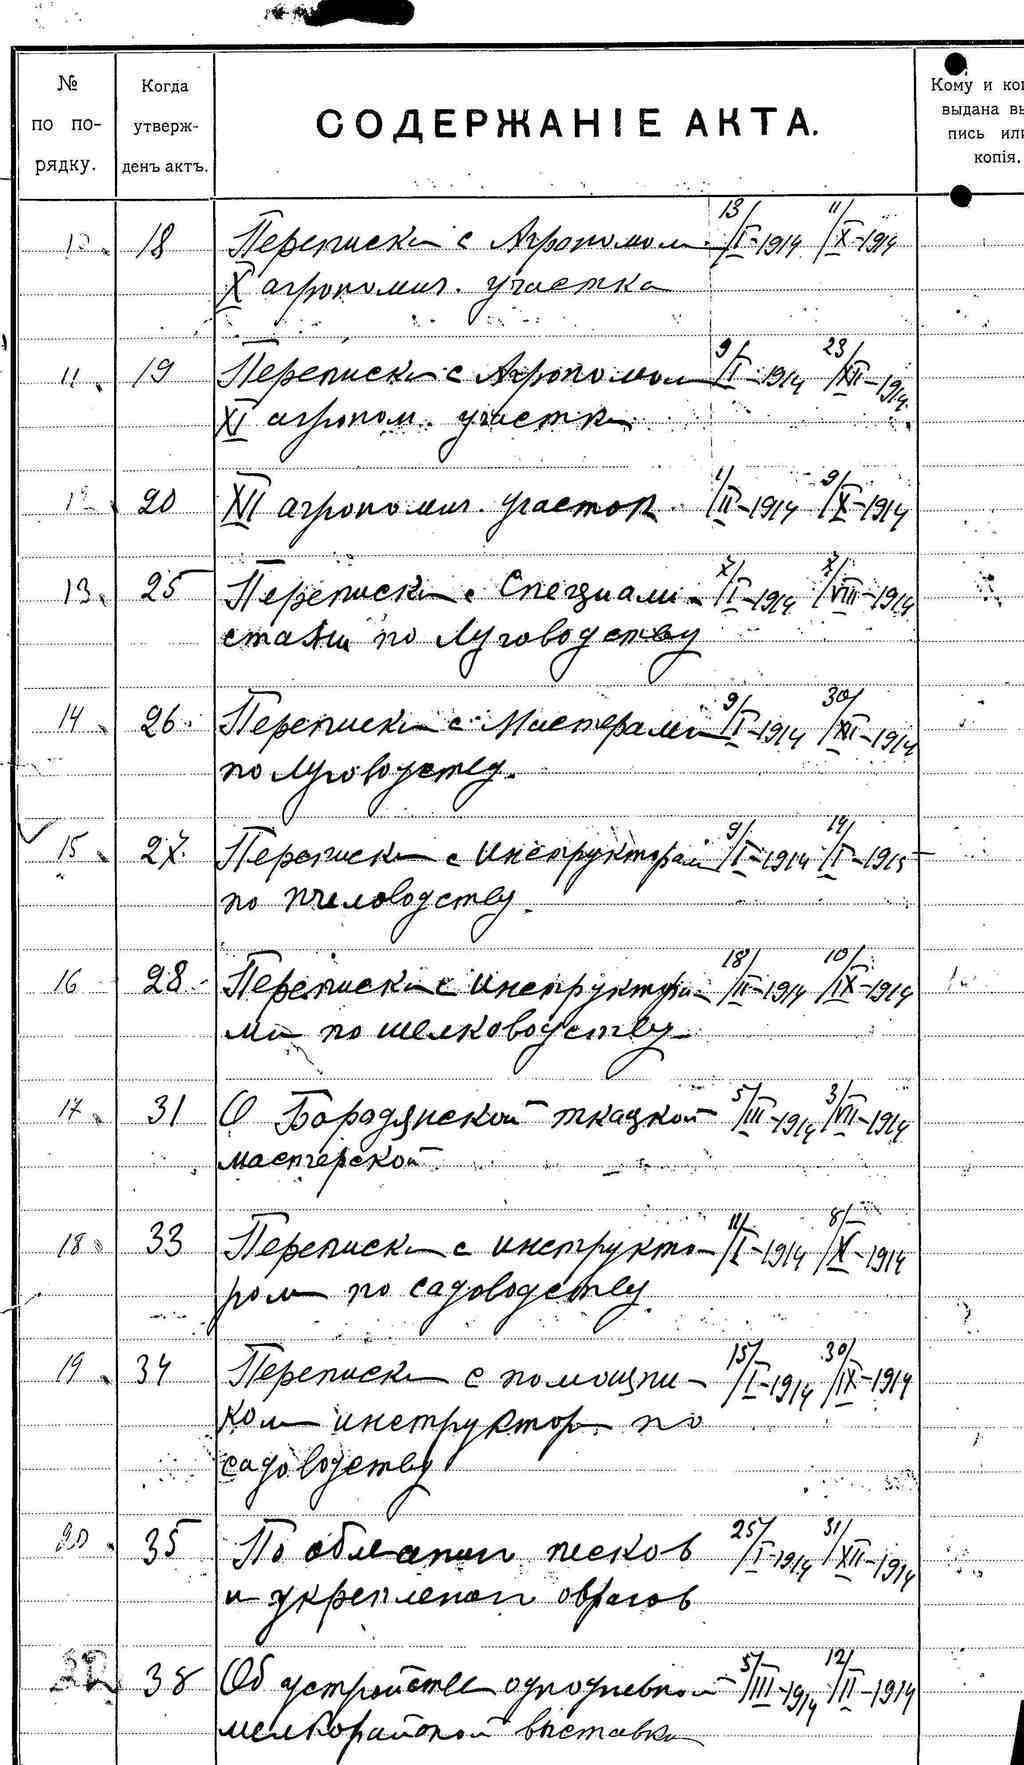 №
по по-
рядку.
Когда
утверж-
денъ актъ.
СОДЕРЖАНІЕ АКТА.
Кому и ког
выдана вы
пись или
копія.
10. 18 Переписка с Агрономом 13/I-1914 11/X-1914
X агрономич. участка
11. 19 Переписка с Агрономом 9/I-1914 23/XII-1914
XI агроном. участка
12 20 XII агрономич. участок 1/II-1914 9/X-1914
13. 25 Переписка с Специали- 7/I-1914 7/VIII-1914
стами по Луговодству
14. 26. Переписка с Мастерами 9/I-1914 30/XI-1914
по Луговодству.
15. 27. Переписка с Инструкторам 9/I-1914 14/I-1915
по пчеловодству.
16 28. Переписка с Инструктора- 18/II-1914 10/IX-1914
ми по шелководству
17. 31 О Бородянской ткацкой 5/III-1914 3/VII-1914
мастерской
18. 33 Переписка с инструкто- 11/I-1914 8/X-1914
ром по садоводству
19. 34 Переписка с помощни- 15/I-1914 30/IX-1914
ком инструктора по
садоводству
20. 35 По облесению песков 25/I-1914 31/XII-1914
и укреплению оврагов
38 Об устройстве однодневной 5/III-1914 12/II-1914
мелкорайонной выставки